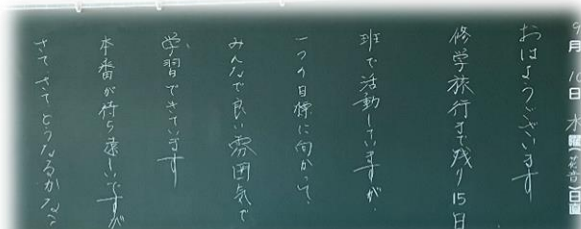 9月18日 水曜()日直
おはようございます
修学旅行まで残り15日
班で活動していますが、
一つの目標に向かって、
みんなで良い雰囲気で
学習できています
本番が待ち遠しいですが
さてさてどうなるかなぁ